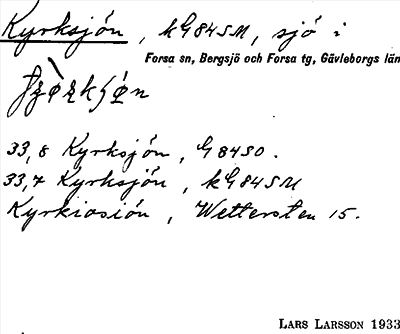 Kyrksjön, kG84SM, sjö i
Forsa sn, Bergsjö och Forsa tg, Gävleborgs län
33,8 Kyrksjön, G84SO.
33,7 Kyrksjön, kG84SM
Kyrkiosiön, Wettersten 15.
LARS LARSSON 1933